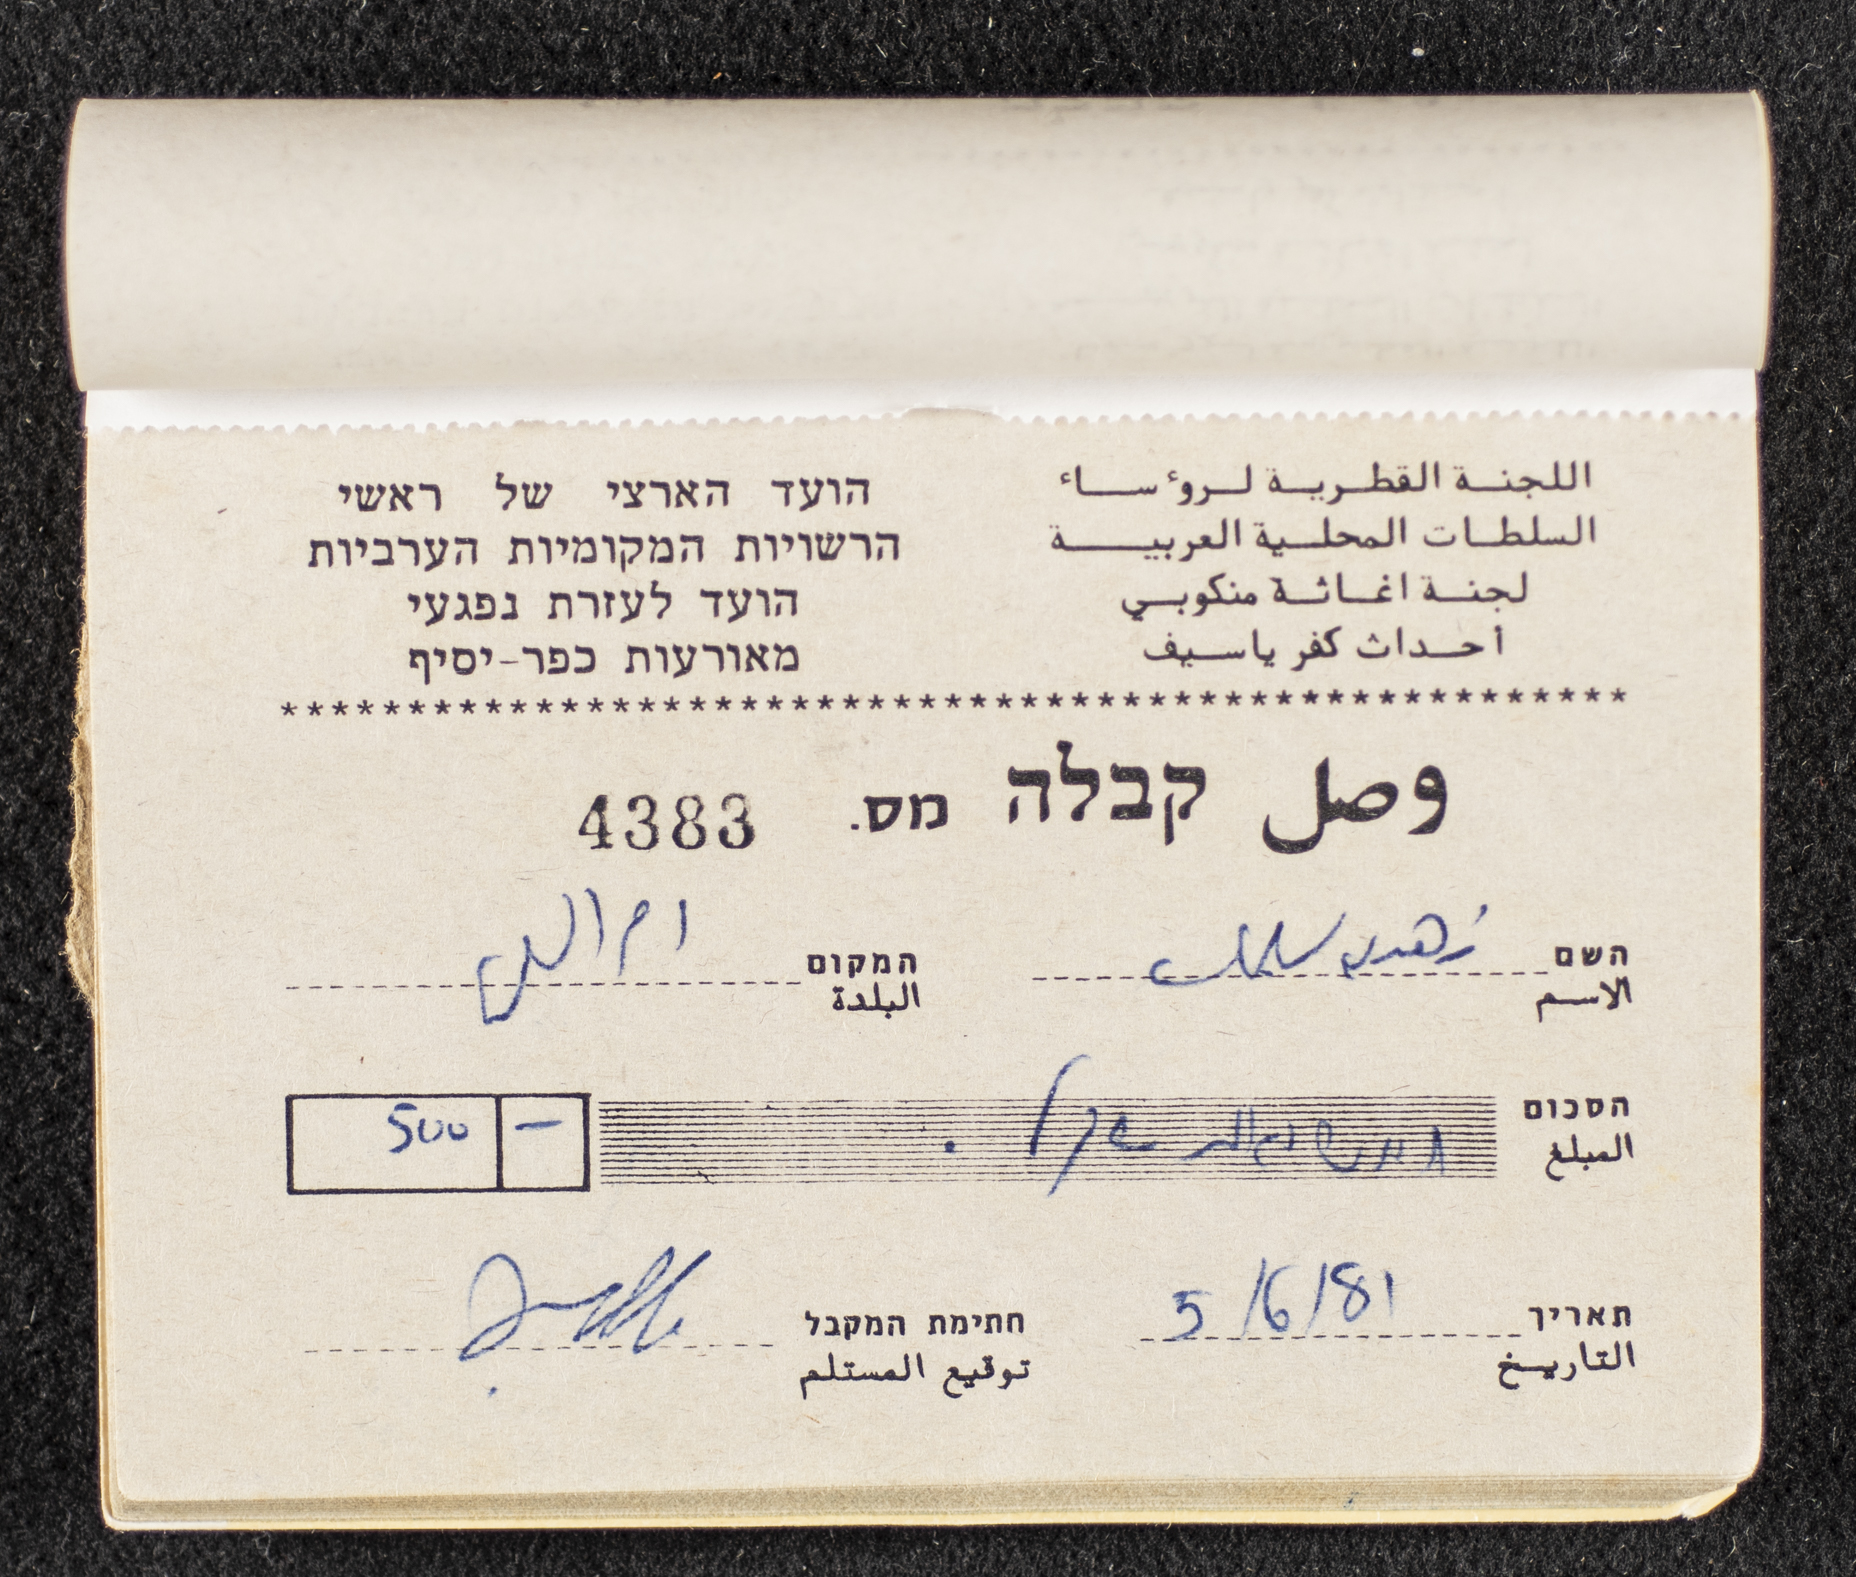 اللجنة القطرية لروءساء
السلطات المحلية العربية
لجنة اغاثة منكوبي
أحداث كفر ياسيف
הועד הארצי של ראשי
הרשויות המקומיות הערביות
הועד לעזרת נפגעי
מאורעות כפר-יסיף
****************************************************
وصل קבלה מס. 4383
השם
الاسم
המקום ام الفحم
البلدة
הסכום
المبلغ
— 500
תאריך 5/6/81
التاريخ
חתימת המקבל
توقيع المستلم